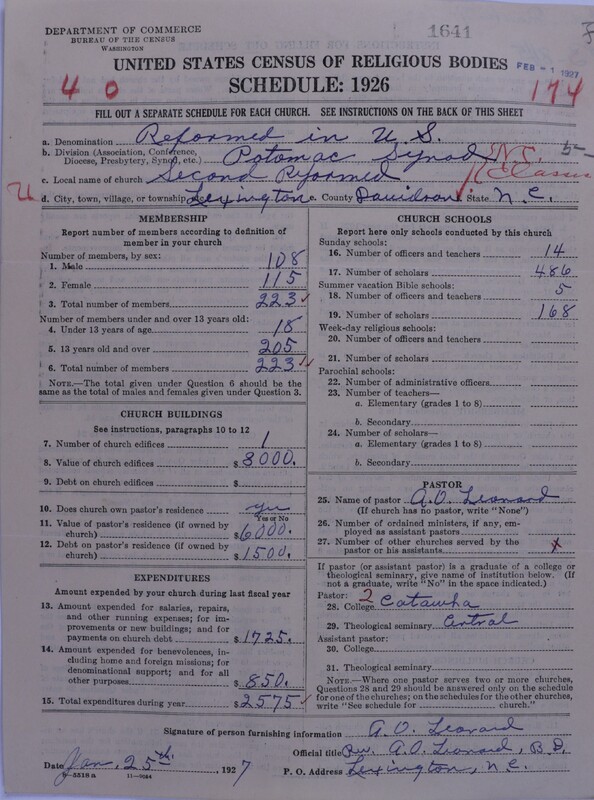 DEPARTMENT OF COMMERCE
BUREAU OF THE CENSUS
WASHINGTON
1641
UNITED STATES CENSUS OF RELIGIOUS BODIES
FEB - 1 1927
SCHEDULE: 1926
4 0
174
FILL OUT A SEPARATE SCHEDULE FOR EACH CHURCH. SEE INSTRUCTIONS ON THE BACK OF THIS SHEET
a. Denomination Reformed in U. S.
b. Division (Association, Conference, Diocese, Presbytery, Synod, etc.) Potomac Synod N.C. Classis 5-
c. Local name of church Second Reformed
U
d. City, town, village, or township Lexington e. County Davidson State N. C.
MEMBERSHIP
Report number of members according to definition of
member in your church
Number of members, by sex:
1. Male 108
2. Female 115
3. Total number of members 223
Number of members under and over 13 years old:
4. Under 13 years of age 18
5. 13 years old and over 205
6. Total number of members 223
NOTE.—The total given under Question 6 should be the
same as the total of males and females given under Question 3.
CHURCH BUILDINGS
See instructions, paragraphs 10 to 12
7. Number of church edifices 1
8. Value of church edifices $ 8000.
9. Debt on church edifices $
10. Does church own pastor's residence yes
Yes or No
11. Value of pastor's residence (if owned by
church) $ 6000.
12. Debt on pastor's residence (if owned by
church) $ 1500.
EXPENDITURES
Amount expended by your church during last fiscal year
13. Amount expended for salaries, repairs,
and other running expenses; for im-
provements or new buildings; and for
payments on church debt $ 1725.
14. Amount expended for benevolences, in-
cluding home and foreign missions; for
denominational support; and for all
other purposes $ 850.
15. Total expenditures during year $ 2575
CHURCH SCHOOLS
Report here only schools conducted by this church
Sunday schools:
16. Number of officers and teachers 14
17. Number of scholars 486
Summer vacation Bible schools:
18. Number of officers and teachers 5
19. Number of scholars 168
Week-day religious schools:
20. Number of officers and teachers
21. Number of scholars
Parochial schools:
22. Number of administrative officers
23. Number of teachers—
a. Elementary (grades 1 to 8)
b. Secondary
24. Number of scholars—
a. Elementary (grades 1 to 8)
b. Secondary
PASTOR
25. Name of pastor A. O. Leonard
(If church has no pastor, write "None")
26. Number of ordained ministers, if any, em-
ployed as assistant pastors
27. Number of other churches served by the
pastor or his assistants x
If pastor (or assistant pastor) is a graduate of a college or
theological seminary, give name of institution below. (If
not a graduate, write "No" in the space indicated.)
Pastor: 2
28. College Catawba
29. Theological seminary Central
Assistant pastor:
30. College
31. Theological seminary
NOTE.—Where one pastor serves two or more churches,
Questions 28 and 29 should be answered only on the schedule
for one of the churches; on schedules for the other churches,
write "See schedule for church."
Signature of person furnishing information A. O. Leonard
Official title Rev. A. O. Leonard, B.D.
Date Jan. 25th, 1927
P. O. Address Lexington, N.C.